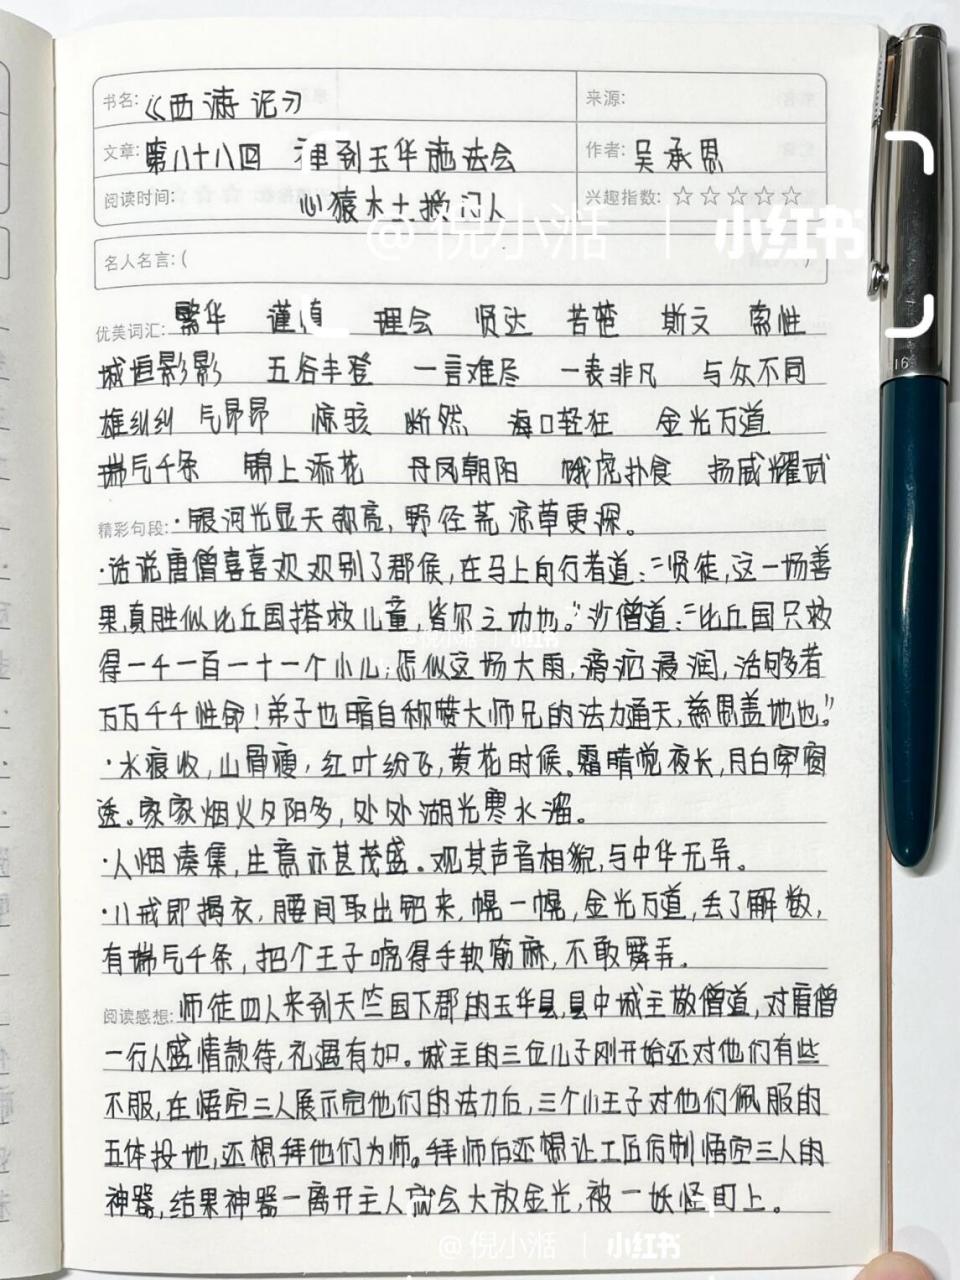 书名:《西游记》 来源:
文章:第八十八回 禅到玉华施法会 作者:吴承恩
阅读时间: 心猿木土授门人 兴趣指数:☆☆☆☆☆
@倪小湉 | 小红书
名人名言:( )
优美词汇: 繁华 谨慎 理会 贤达 苦苍 斯文 索性
城垣影影 五谷丰登 一言难尽 一表非凡 与众不同
雄纠纠 气昂昂 惊骇 断然 海口轻狂 金光万道
瑞气千条 锦上添花 丹凤朝阳 饿虎扑食 扬威耀武
精彩句段:·银河光显天都亮,野径荒凉草更深。
·话说唐僧喜喜欢欢别了郡侯,在马上向行者道:“贤徒,这一场善
果,真胜似比丘国搭救儿童,皆尔之功也。”沙僧道:“比丘国只救
得一千一百一十一个小儿;怎似这场大雨,滂沱浸润,活够者
万万千千性命!弟子也暗自称赞大师兄的法力通天,慈恩盖地也。”
·水痕收,山骨瘦,红叶纷飞,黄花时候。霜晴觉夜长,月白穿窗
透。家家烟火夕阳多,处处湖光寒水溜。
·人烟凑集,生意亦甚茂盛。观其声音相貌,与中华无异。
·八戒即揭衣,腰间取出钯来,幌一幌,金光万道,丢了解数,
有瑞气千条,把个王子唬得手软筋麻,不敢舞弄。
阅读感想:师徒四人来到天竺国下郡的玉华县,县中城主敬僧道,对唐僧
一行人盛情款待,礼遇有加。城主的三位儿子刚开始还对他们有些
不服,在悟空三人展示完他们的法力后,三个小王子对他们佩服的
五体投地,还想拜他们为师。拜师后还想让工匠仿制悟空三人的
神器,结果神器一离开主人就会大放金光,被一妖怪盯上。
@倪小湉 | 小红书